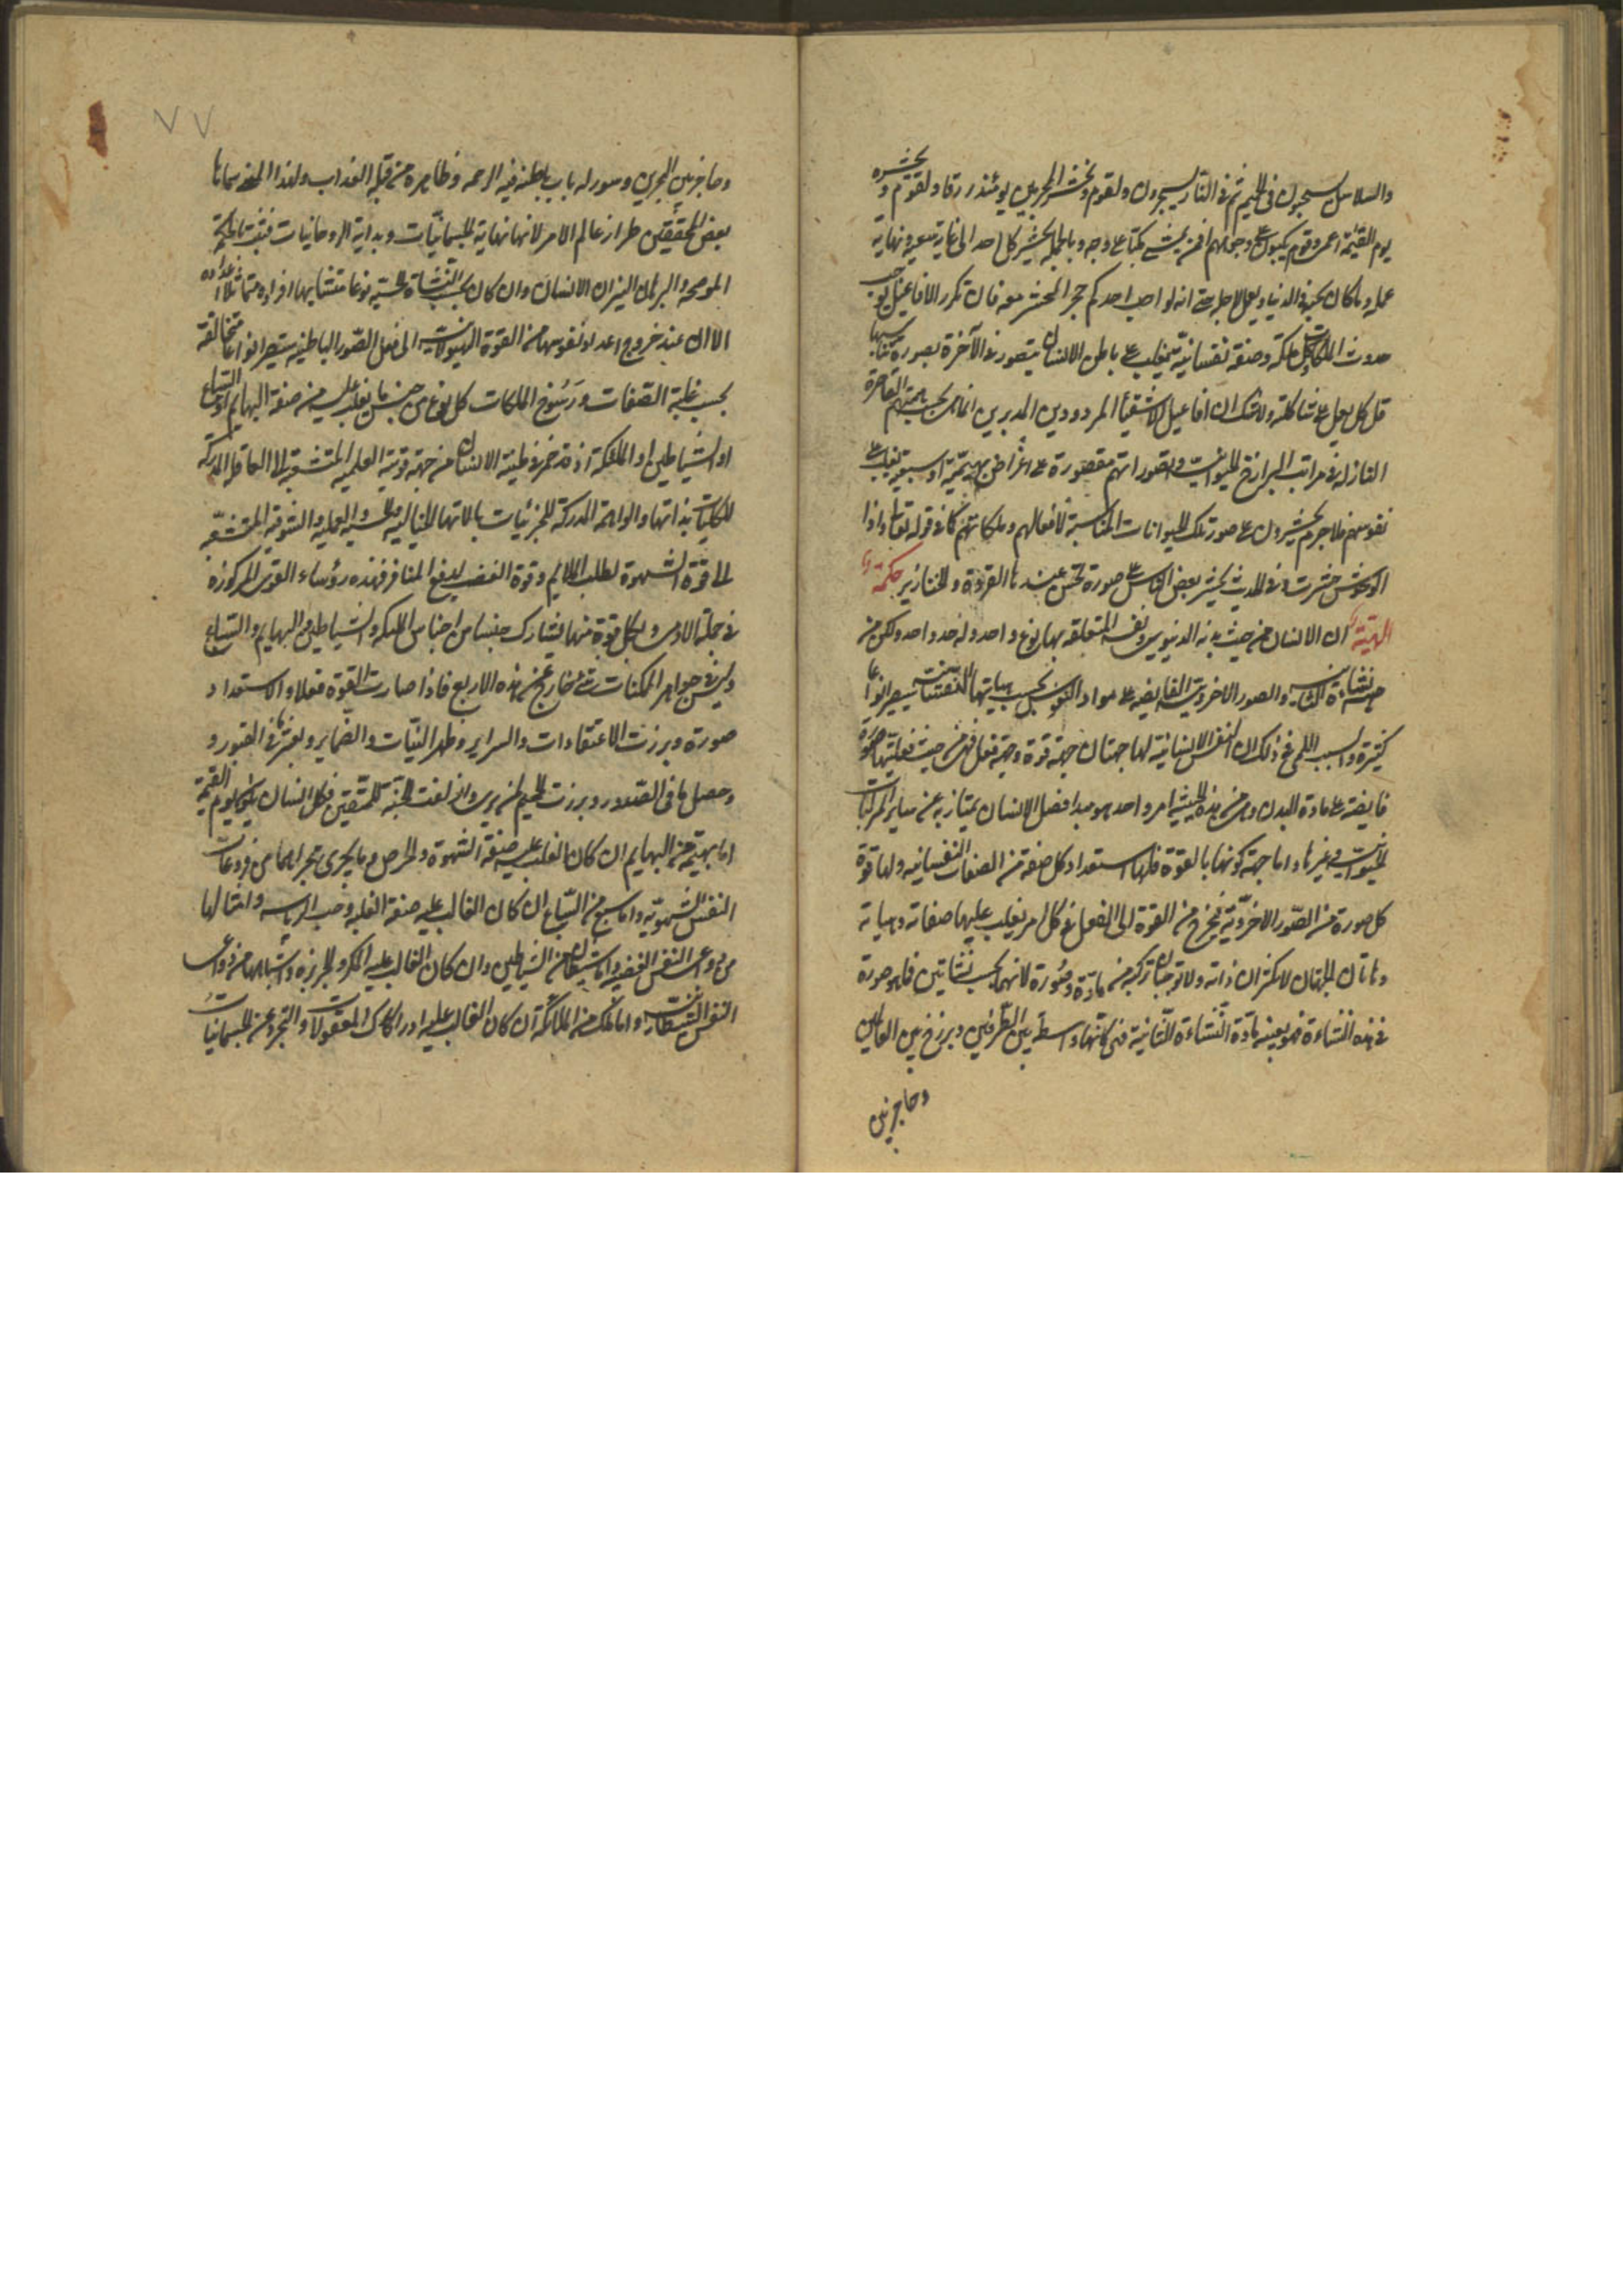 والسلاسل يسحبون في الحميم ثم في النار يسجرون ولقوم ونحشر المجرمين يومئذ زرقا ولقوم ونحشره
يوم القيمة اعمى وقوم يكبون على وجوههم افمن يمشي مكبا على وجهه وبالجملة يحشر كل احد الى غاية سعيه ونهاية
عمله وما كان يحبه في الدنيا ويعمل لاجله حتى انه لو احب احدكم حجرا لحشر معه فان تكرر الافاعيل يوجب
حدوث الملكات وكل ملكة وصفة نفسانية تغلب على باطن الانسان يتصور في الآخرة بصورة تناسبها
قل كل يعمل على شاكلته ولا شك ان افاعيل الاشقياء المردودين المدبرين انما هي بحسب هممهم القاصرة
النازلة في مراتب البرازخ الحيوانية وتصوراتهم مقصورة على اغراض بهيمية او سبعية تغلب على
نفوسهم فلا جرم يحشرون على صورة تلك الحيوانات المناسبة لافعالهم وملكاتهم كما في قوله تعالى واذا
الوحوش حشرت وفي الحديث يحشر بعض الناس على صورة تحسن عندها القردة والخنازير حكمة
الهية ان الانسان من حيث بدنه الدنيوي ونفسه المتعلقة بها نوع واحد وله حد واحد ولكن من
حيث نشاته الثانية والصور الاخروية الفايضة على مواد النفوس بحسب هياتها النفسانية سيصير انواعا
كثيرة والسبب اللمي في ذلك ان النفس الانسانية لها جهتان جهة قوة وجهة فعل فهي من حيث فعليتها صورة
فايضة على مادة البدن وهي من هذه الحيثية امر واحد هو مبدا فصل الانسان يمتاز به عن ساير المركبات
الحيوانية وغيرها واما جهة كونها بالقوة فلها استعداد كل صفة من الصفات النفسانية ولها قوة
كل صورة من الصور الاخروية فيخرج من القوة الى الفعل في كل امر يغلب عليها صفاته وهياته
وهاتان الجهتان لا تكثران ذاته ولا توجبان تركبه من مادة وصورة لانهما بحسب نشاتين فما هو صورة
في هذه النشاءة فهو بعينه مادة النشاءة الثانية فهي كانها واسطة بين الطرفين وبرزخ بين العالمين
وحاجز بين
٧٧
وحاجز بين البحرين وسور له باب باطنه فيه الرحمة وظاهره من قبله العذاب ولهذا المعنى سماها
بعض المحققين طراز عالم الامر لانها نهاية الجسمانيات وبداية الروحانيات فثبت بالحكمة
الموضحة والبرهان النير ان الانسان وان كان بحسب النشاة الحسية نوعا متشابها افراده متماثلا اعداده
الا ان عند خروج اعداد نفوسها من القوة الهيولانية الى فعل الصور الباطنية ستصير انواعا متخالفة
بحسب غلبة الصفات ورسوخ الملكات كل نوع من جنس ما يغلب عليه من صفة البهايم او السباع
او الشياطين او الملئكة اذ قد خمر في طينة الانسان من جهة قوته العلمية المتشعبة الى العاقلة المدركة
للكليات بذاتها والواهمة المدركة للجزئيات بالاتها الخيالية والحسية والعملية والشوقية المتشعبة
الى قوة الشهوة لطلب الملايم وقوة الغضب لدفع المنافر فهذه رؤساء القوى المركوزة
في جبلة الادمي ولكل قوة منها يشارك جنسا من اجناس الملئكة والشياطين والبهايم والسباع
وليس في جواهر الممكنات شيء خارج عن هذه الاربع فاذا صارت القوة فعلا والاستعداد
صورة وبرزت الاعتقادات والسراير وظهر النيات والضماير وبعثر ما في القبور و
وحصل ما في الصدور وبرزت الجحيم لمن يرى وازلفت الجنة للمتقين فكل انسان يكون يوم القيمة
اما بهيمة من البهايم ان كان الغالب عليه صفة الشهوة والحرص وما يجري مجراهما من فروعات
النفس الشهوية واما سبع من السباع ان كان الغالب عليه صفة الغلبة وحب الرياسة وامثالها
من فروعات النفس الغضبية واما شيطان من الشياطين وان كان الغالب عليه المكر والجربزة واشباهها من فروعات
النفس الشيطانية واما ملك من الملائكة ان كان الغالب عليه ادراكات المعقولات والتجرد عن الجسمانيات